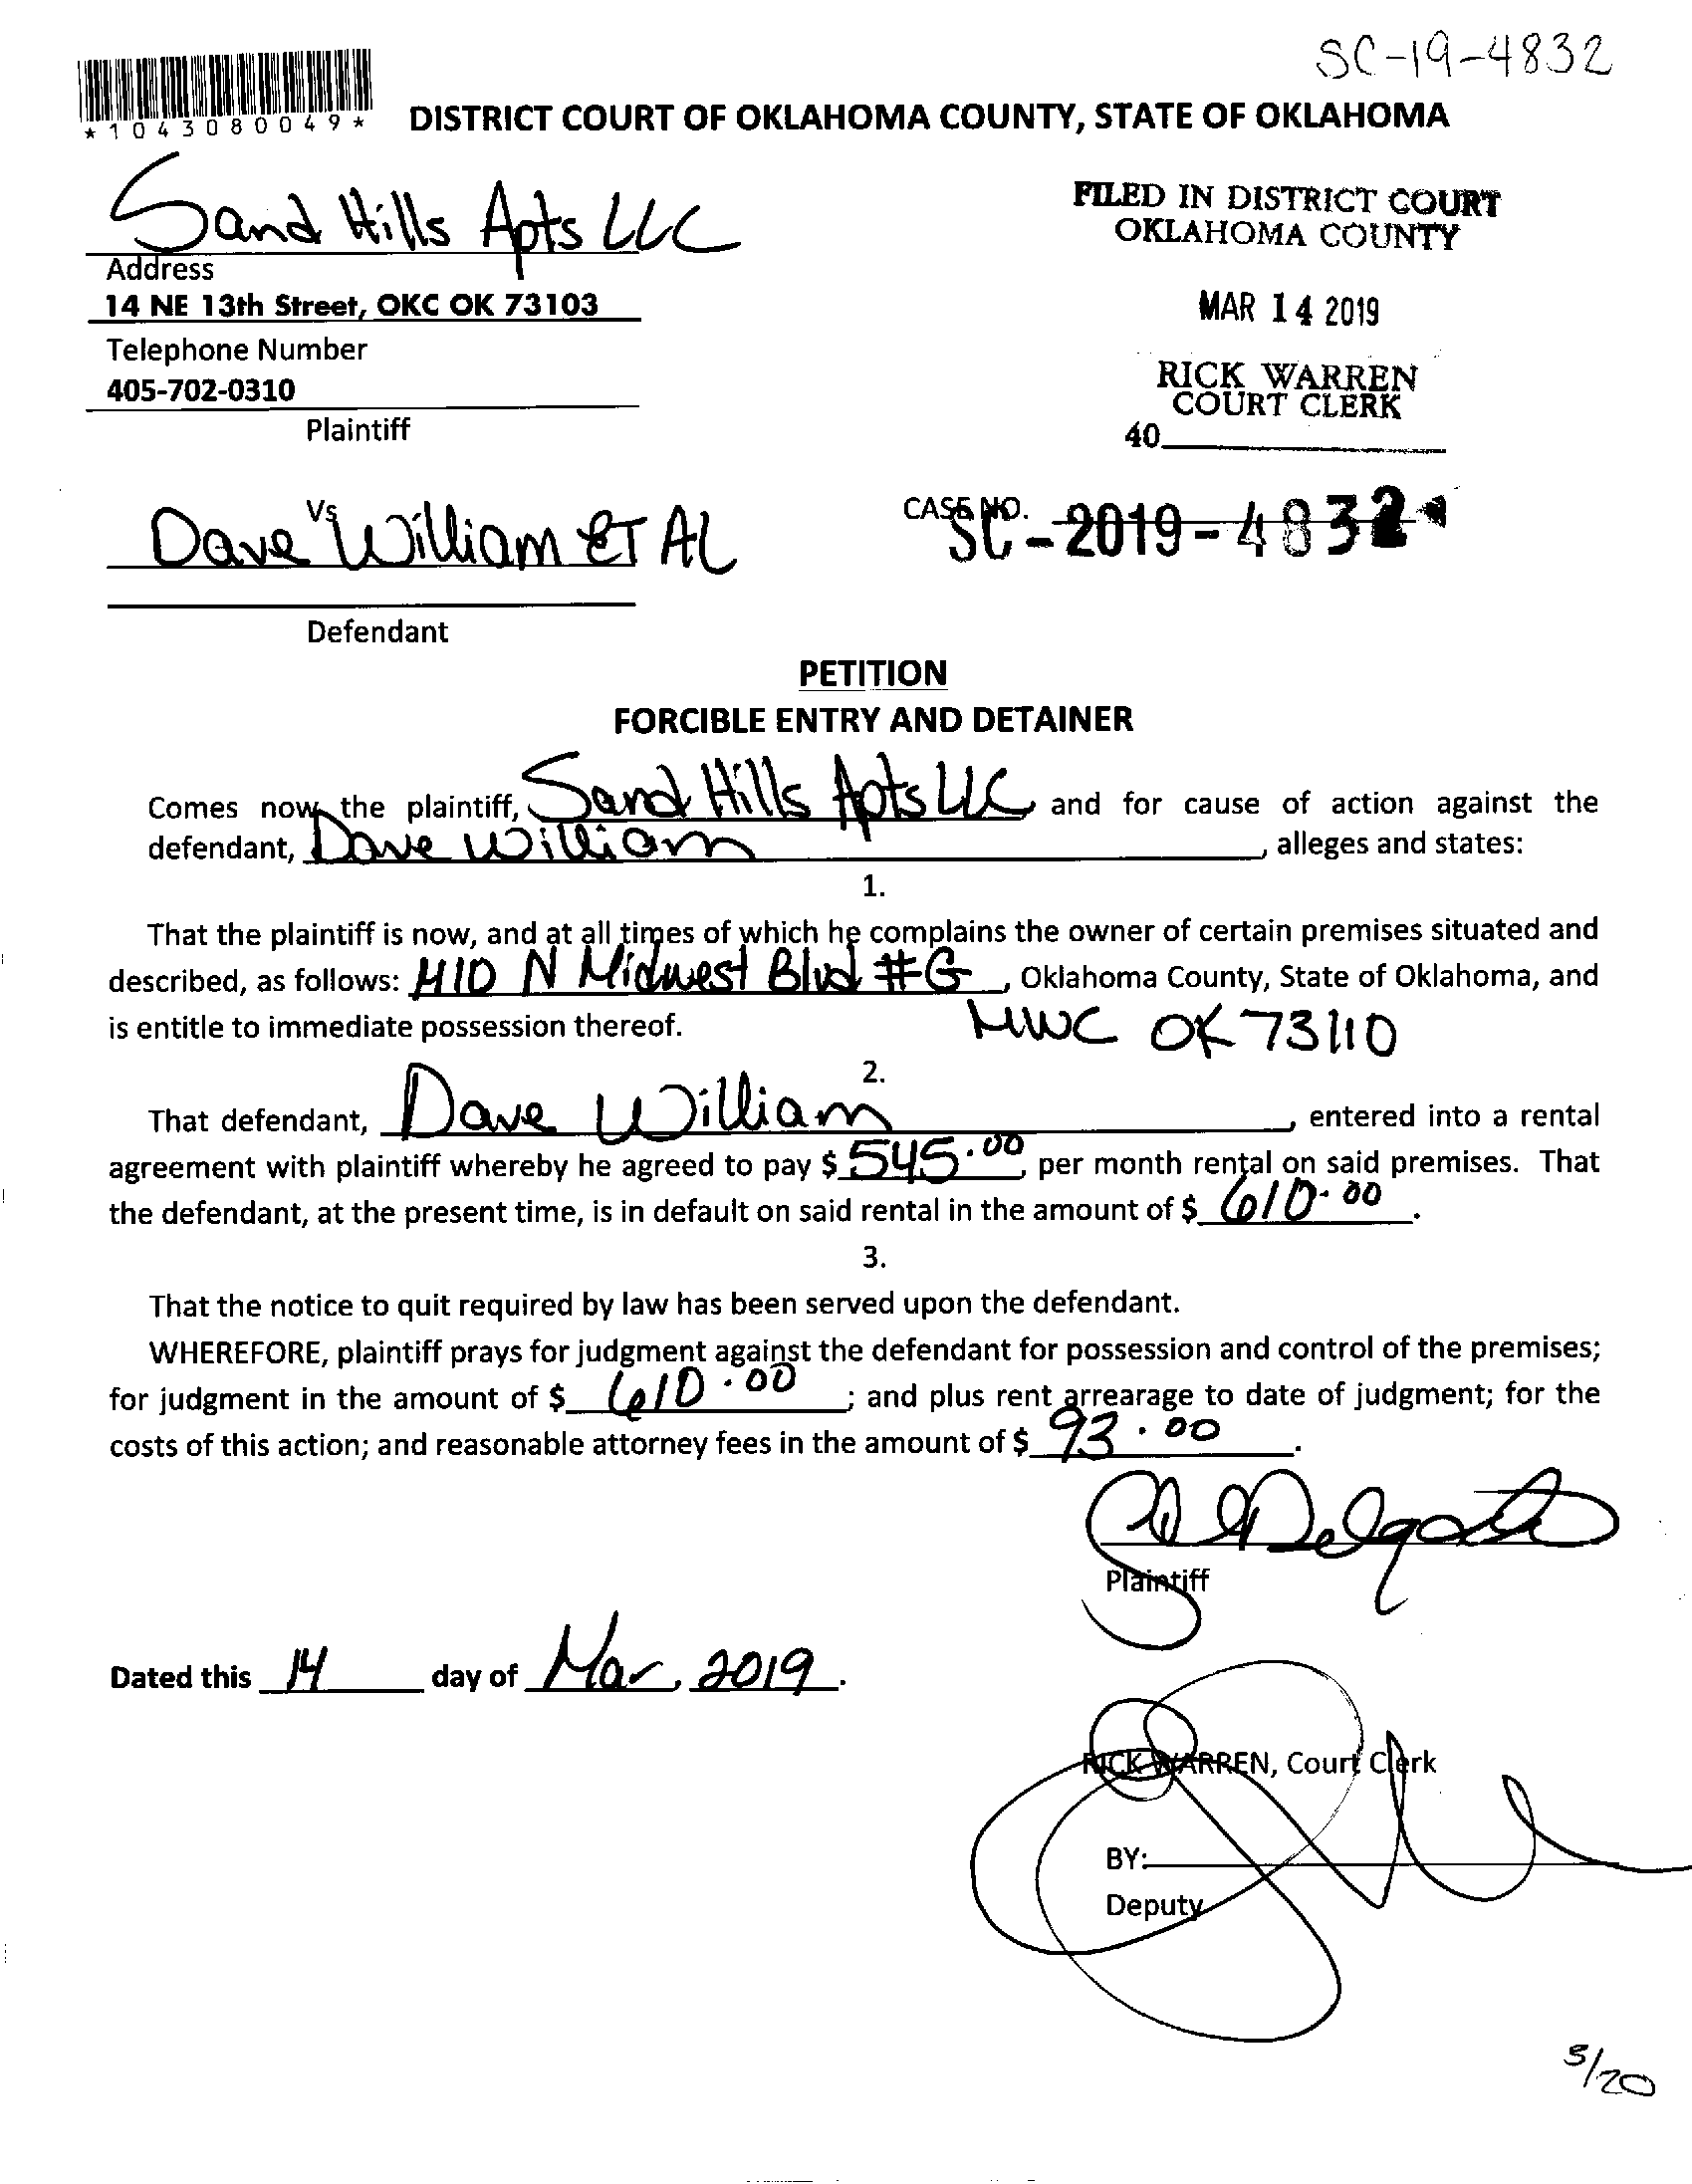 SC-19-4832
*1043080049*
DISTRICT COURT OF OKLAHOMA COUNTY, STATE OF OKLAHOMA
Sand Hills Apts LLC
Address
14 NE 13th Street, OKC OK 73103
Telephone Number
405-702-0310
Plaintiff
FILED IN DISTRICT COURT
OKLAHOMA COUNTY
MAR 14 2019
RICK WARREN
COURT CLERK
40
Vs
Dave William ET AL
CASE NO.
SC-2019-4832
Defendant
PETITION
FORCIBLE ENTRY AND DETAINER
Comes now the plaintiff, Sand Hills Apts LLC and for cause of action against the
defendant, Dave William, alleges and states:
1.
That the plaintiff is now, and at all times of which he complains the owner of certain premises situated and
described, as follows: 410 N Midwest Blvd #G, Oklahoma County, State of Oklahoma, and
is entitle to immediate possession thereof. MWC OK 73110
2.
That defendant, Dave William, entered into a rental
agreement with plaintiff whereby he agreed to pay $ 545.00, per month rental on said premises. That
the defendant, at the present time, is in default on said rental in the amount of $ 610.00.
3.
That the notice to quit required by law has been served upon the defendant.
WHEREFORE, plaintiff prays for judgment against the defendant for possession and control of the premises;
for judgment in the amount of $ 610.00; and plus rent arrearage to date of judgment; for the
costs of this action; and reasonable attorney fees in the amount of $ 93.00.
Delgado
Plaintiff
Dated this 14 day of Mar, 2019.
RICK WARREN, Court Clerk
BY:
Deputy
3/20